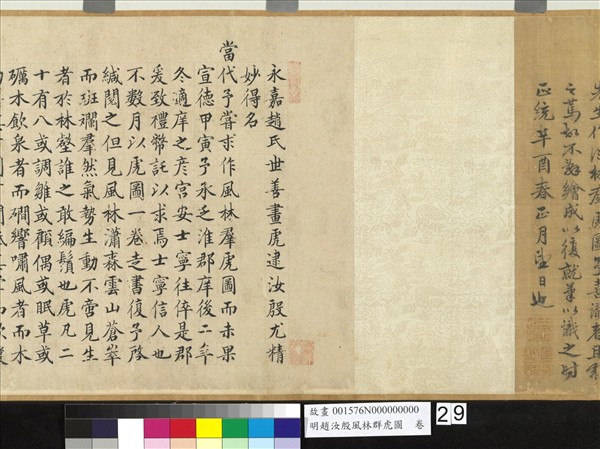 之篤
繪成以復
以識之時
正統辛酉春正月望日也
永嘉趙氏世善畫虎逮汝殷尤精
妙得名
當代予嘗求作風林羣虎圖而未果
宣德甲寅予承乏淮郡庠後二年
冬適庠之彥宮安士寧往倅是郡
爰致禮幣託以求焉士寧信人也
不數月以虎圖一卷走書復予啓
緘閱之但見風林瀟森雲山蒼崒
而斑斕羣然氣勢生動不啻見生
者於林壑誰之敢編鬚也虎凡二
十有八或調雛或顧偶或眠草或
礪木飲泉者而磵響嘯風者而木
故畫 001576N000000000
明趙汝殷風林群虎圖 卷
29